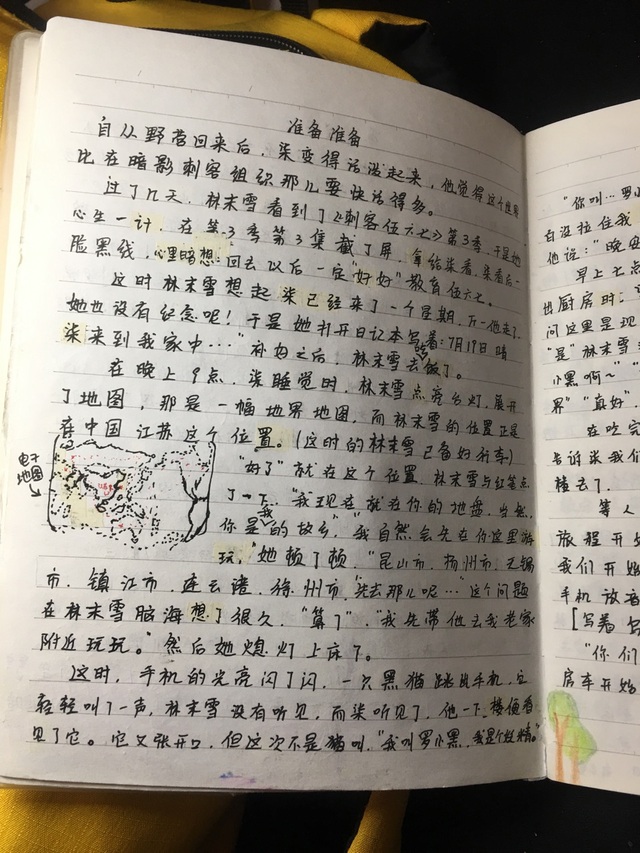 准备准备
自从野营回来后，柒变得话泼起来，他觉得这个世界
比在暗影刺客组织那儿要快活得多。
过了几天，林末雪看到了《刺客伍六七》第3季，于是她
心生一计，在第3季第3集截了屏，拿给柒看，柒看后一
脸黑线，心里暗想：回去以后一定"好好"教育伍六七。
这时林末雪想起柒已经来了一个星期，万一他走了，
她也没有纪念呢！于是她打开日记本写着：7月19日 晴
柒来到我家中…"补好之后，林末雪去做饭了。
在晚上9点，柒睡觉时，林末雪点亮台灯，展开
了地图，那是一幅地界地图，而林末雪的位置正是
在中国江苏这个位置。(这时的林末雪已备好行李)
电子
地图
"好了"就在这个位置，林末雪与红笔点
了一下，"我现在就在你的地盘，当然，
你是我的故乡"，"我自然会先在你这里游
玩，"她顿了顿，"昆山市，扬州市，无锡
市，镇江市，连云港，徐州市，先去那儿呢…"这个问题
在林末雪脑海想了很久，"算了"，"我先带他去我老家
附近玩玩。"然后她熄灯上床了。
这时，手机的光亮闪了闪，一只黑猫跳出手机，它
轻轻叫了一声，林末雪没有听见，而柒听见了，他一下楼便看
见了它。它又张开口，但这次不是猫叫，"我叫罗小黑，我是个妖精。"
"你叫…罗小
白没拉住我
他说："晚
早上七点
出厨房时，
问这里是现
"是"林末雪
小黑啊～"
界""真好"，
在吃完
告诉柒我们
楼去了。
等人
旅程开始
我们开始
手机放音
[写着
"你们
房车开始